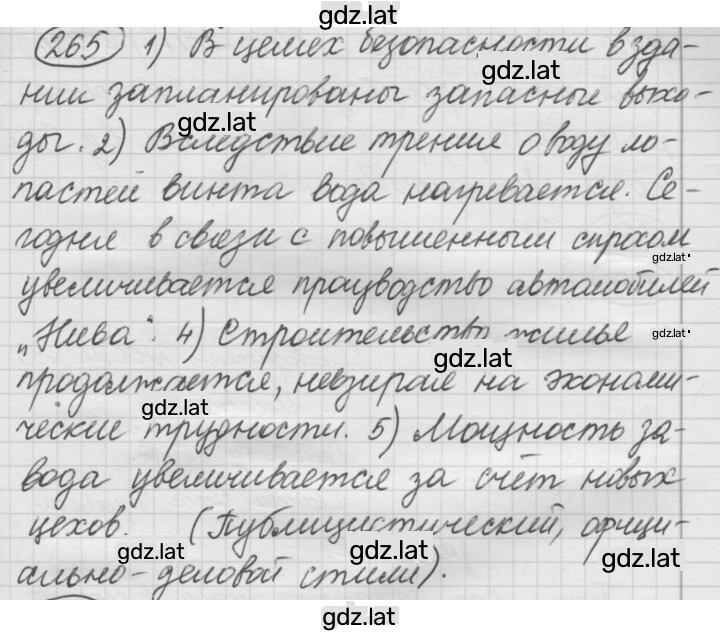 gdz.lat
265 1) В целях безопасности в зда-
gdz.lat
нии запланированы запасные выхо-
gdz.lat
ды. 2) Вследствие трения о воду ло-
пастей винта вода нагревается. Се-
годня в связи с повышенным спросом
gdz.lat
увеличивается производство автомобилей
„Нива“. 4) Строительство жилья
gdz.lat
gdz.lat
продолжается, невзирая на экономи-
gdz.lat
ческие трудности. 5) Мощность за-
вода увеличивается за счёт новых
цехов. (Публицистический, офици-
gdz.lat
gdz.lat
gdz.lat
ально-деловой стили).
gdz.lat